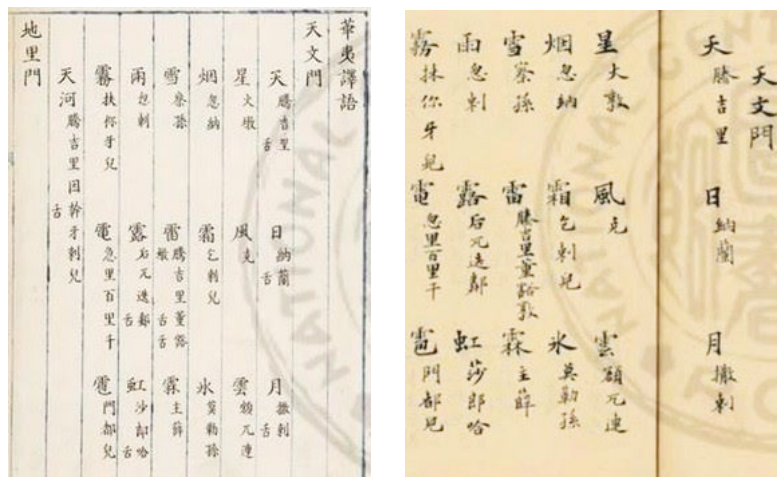 華夷譯語
天文門
天 騰吉里 舌 日 納蘭 舌 月 撒剌 舌
星 火墩 風 克 雲 額兀連
烟 忽納 霜 乞剌兒 氷 莫勒孫
雪 察孫 雷 騰吉里董豁墩 舌 舌 霖 主薛
雨 忽剌 露 后兀迭鄰 舌 虹 沙郎哈 舌
霧 扶你牙兒 電 急里百里千 雹 門都兒
天河 騰吉里因幹牙剌兒 舌
地里門
天文門
天 騰吉里 日 納蘭 月 撒剌
星 大敦 風 克 雲 額兀連
烟 忽納 霜 乞剌兒 氷 莫勒孫
雪 察孫 雷 騰吉里董豁敦 霖 主薛
雨 忽剌 露 后兀迭鄰 虹 莎郎哈
霧 抹你牙兒 電 忽里百里干 雹 門都兒
NATIONAL
NATIONAL